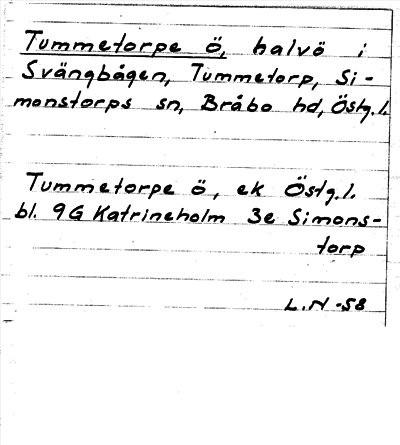 Tummetorpe ö, halvö i
Svängbågen, Tummetorp, Si-
monstorps sn, Bråbo hd, Östg.l.
Tummetorpe ö, ek Östg.l.
bl. 9G Katrineholm 3e Simons-
torp
L.N -58